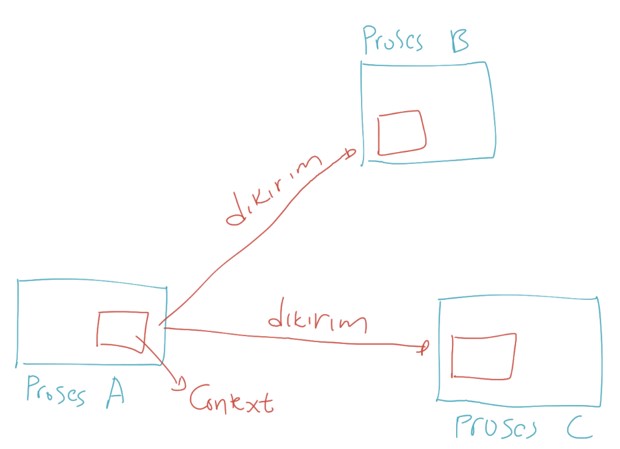 Proses B
dikirim
dikirim
Proses A
Context
Proses C